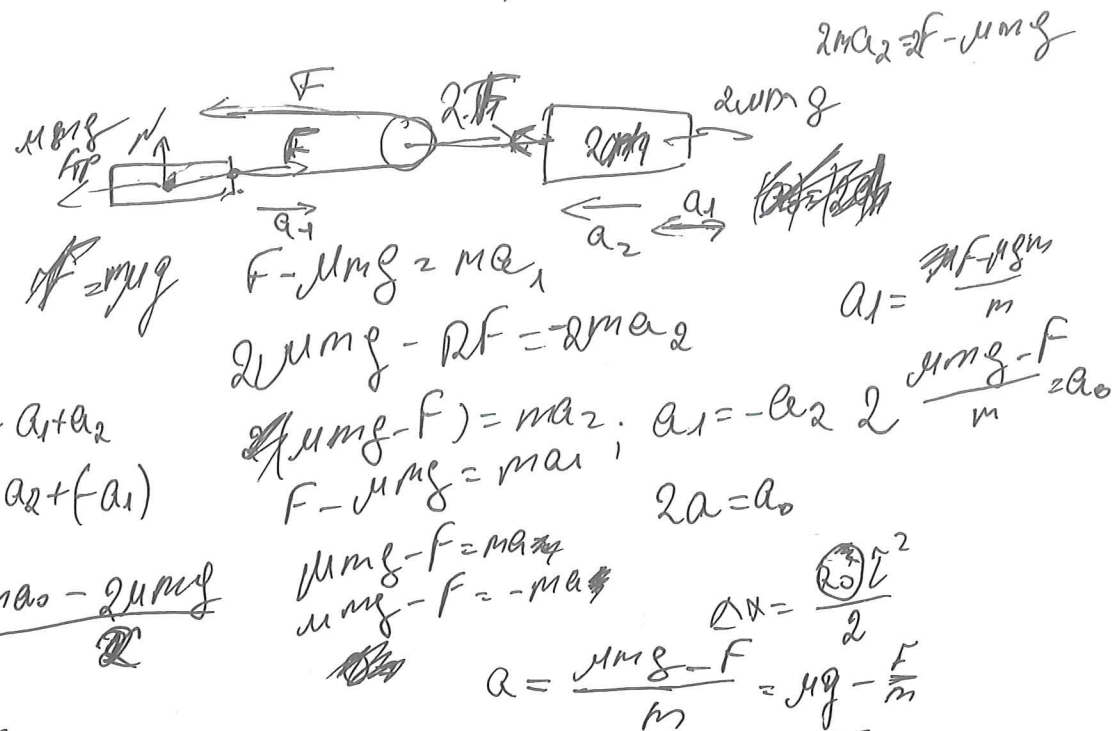 2ma₂=2F-μmg
F
2F
2μmg
μmg
Fтр
N
F
2m
a₁
a₂
a₁
F=mμg
F-μmg=ma₁
a₁=F-μgm/m
2μmg-2F=-2ma₂
a₁+a₂
(μmg-F)=ma₂; a₁=-a₂
2 μmg-F/m=a₀
a₂+(-a₁)
F-μmg=ma₁
2a=a₀
ma₀-2μmg/2
μmg-F=ma
μmg-F=-ma
Δx=a₀τ²/2
a=μmg-F/m=μg-F/m